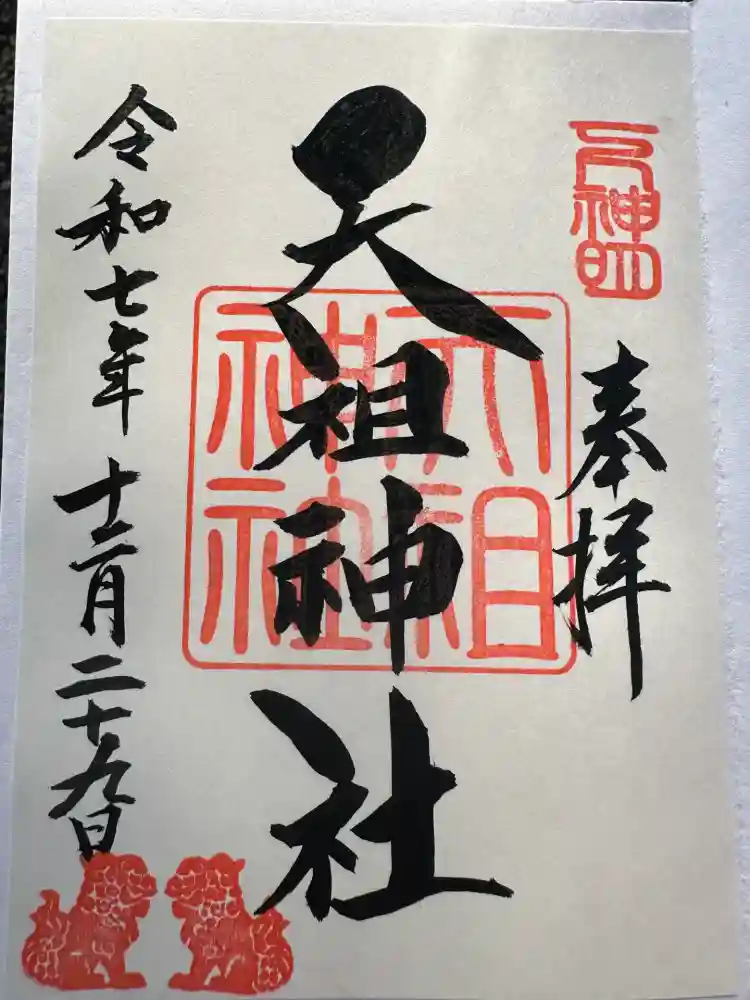 神明
奉拝
天祖神社
天祖
神社
令和七年十二月二十九日